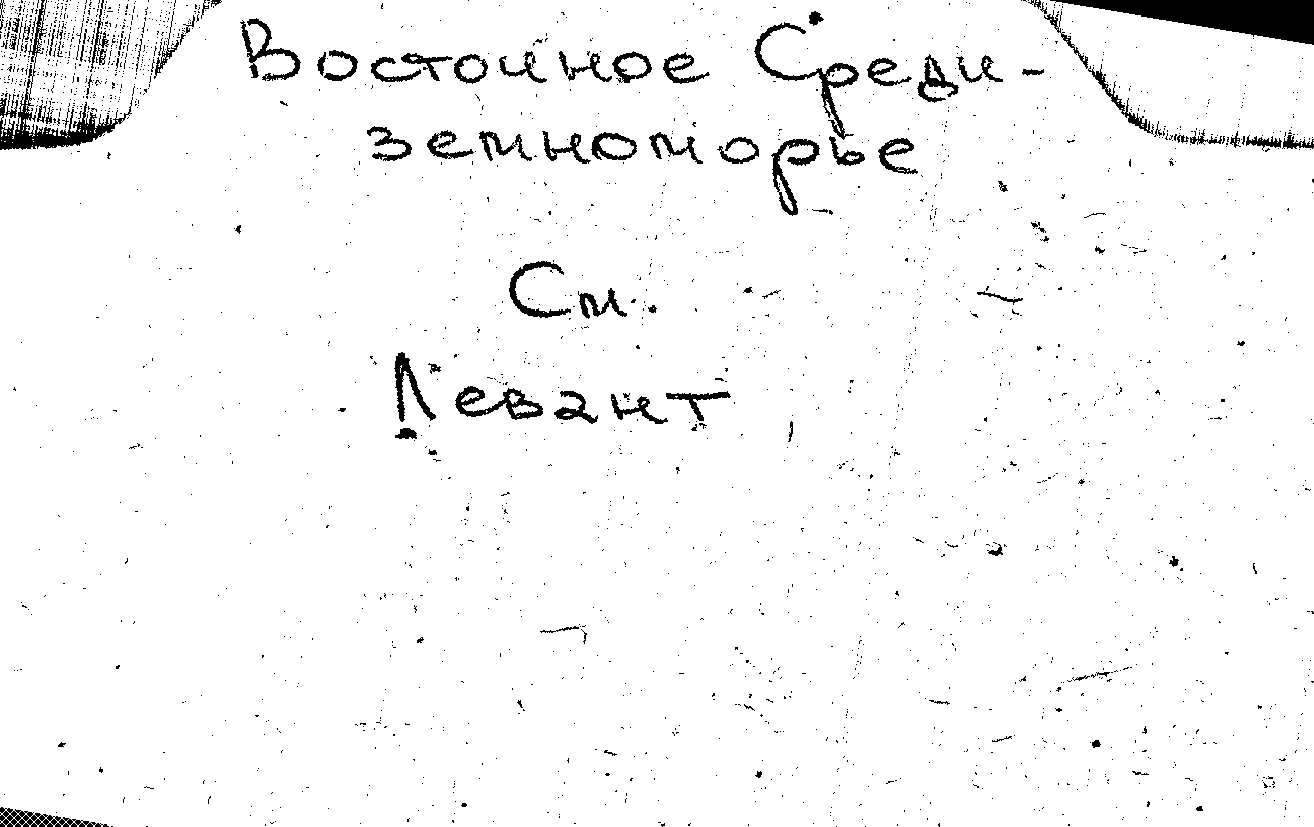 Восточное Среди-
земноморье
См.
Левант